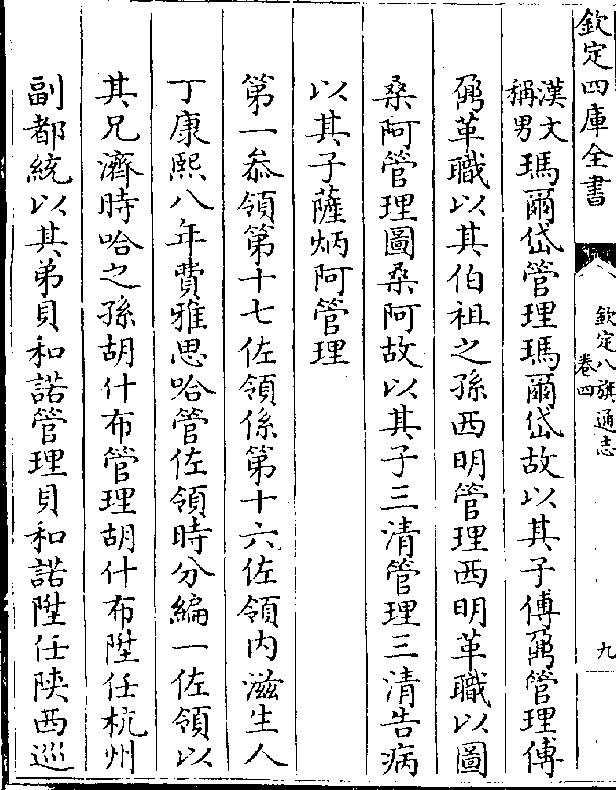 欽定四庫全書
欽定八旗通志
卷四
九
漢文
稱男
瑪爾岱管理瑪爾岱故以其子傅鼐管理傅
鼐革職以其伯祖之孫西明管理西明革職以圖
桑阿管理圖桑阿故以其子三清管理三清告病
以其子薩炳阿管理
第一叅領第十七佐領係第十六佐領内滋生人
丁康熙八年費雅思哈管佐領時分編一佐領以
其兄濟時哈之孫胡什布管理胡什布陞任杭州
副都統以其弟貝和諾管理貝和諾陞任陜西巡